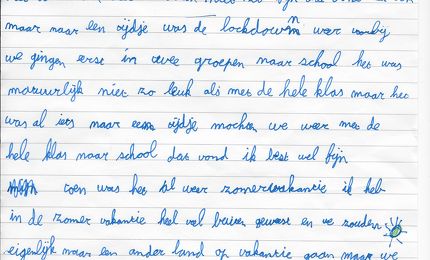 maar naar een tijdje was de lockdown weer voorbij
we gingen eerst in twee groepen naar school het was
natuurlijk niet zo leuk als met de hele klas maar het
was al iets maar een tijdje mochten we weer met de
hele klas naar school dat vond ik best wel fijn
toen was het al weer zomervakantie ik heb
in de zomer vakantie heel vel buiten geweest en we zouden
eigenlijk naar een ander land op vakantie gaan maar we